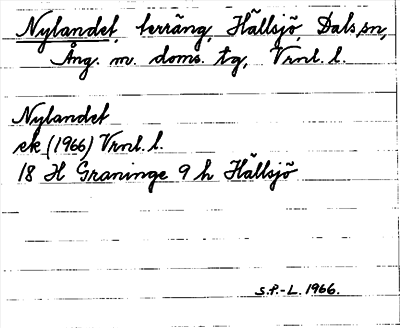 Nylandet, terräng, Hällsjö, Dals sn,
Ång. m. doms. tg, Vrnl. l.
Nylandet
ek (1966) Vrnl. l.
18 H Graninge 9 h Hällsjö
S.F.-L. 1966.